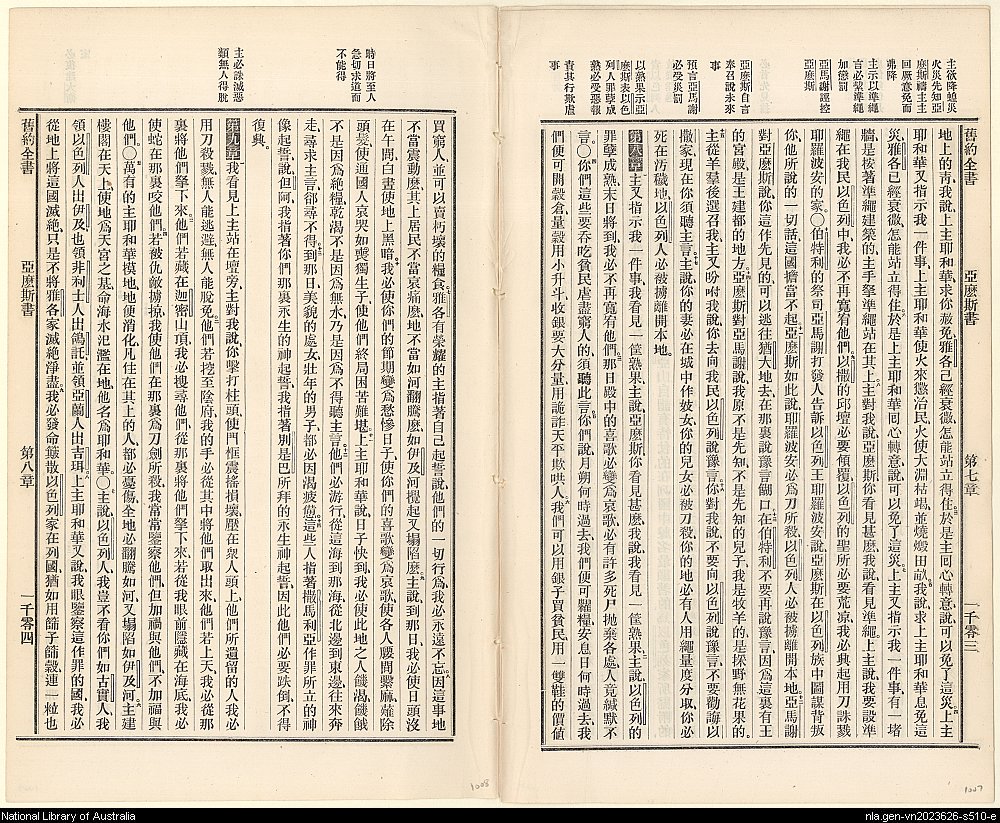 主欲降蝗災
火災先知亞
麼斯禱主主
回厥意免而
弗降
主示以準繩
言必縈準繩
加懲罰
亞馬謝誣控
亞麼斯
亞麼斯自言
奉召說未來
事
預言亞馬謝
必受災罰
以熟果示亞
麼斯表以色
列人罪孽成
熟必受惡報
責其行欺虐
事
舊約全書 亞麼斯書 第七章 一千零三
地上的靑我說上主耶和華求你赦免雅各已經衰微怎能站立得住於是主囘心轉意說可以免了這災上主
耶和華又指示我一件事上主耶和華使火來懲治民火使大淵枯竭並燒燬田畝我說求上主耶和華息免這
災雅各已經衰微怎能站立得住於是上主耶和華囘心轉意說可以免了這災上主又指示我一件事有一堵
牆是按著準繩建築的主手拏準繩站在其上主對我說亞麼斯你看見甚麼我說看見準繩上主說我要設準
繩在我民以色列中我必不再寬宥他們以撒的邱壇必要傾覆以色列的聖所必要荒凉我必興起用刀誅戮
耶羅波安的家〇伯特利的祭司亞馬謝打發人告訴以色列王耶羅波安說亞麼斯在以色列族中圖謀背叛
你他所說的一切話這國擔當不起亞麼斯如此說耶羅波安必爲刀所殺以色列人必被擄離開本地亞馬謝
對亞麼斯說你這作先見的可以逃往猶大地去在那裏說豫言餬口在伯特利不要再說豫言因爲這裏有王
的宮殿是王建都的地方亞麼斯對亞馬謝說我原不是先知不是先知的兒子我是牧羊的是採野無花果的
主從羊羣後選召我主又吩咐我說你去向我民以色列說豫言你對我說不要向以色列說豫言不要勸誨以
撒家現在你須聽主言主說你的妻必在城中作妓女你的兒女必被刀殺你的地必有人用繩量度分取你必
死在汚穢地以色列人必被擄離開本地
第八章 主又指示我一件事我看見一筐熟果主說亞麼斯你看見甚麼我說我看見一筐熟果主說以色列的
罪孽成熟末日將到我必不再寬宥他們那日殿中的喜歌必變爲哀歌必有許多死尸拋棄各處人竟緘默不
言〇你們這些要吞吃貧民虐盡窮人的須聽此言你們說月朔何時過去我們便可糶糧安息日何時過去我
們便可開穀倉量穀用小升斗收銀要大分量用詭詐天平欺哄人我們可以用銀子買貧民用一雙鞋的價値
時日將至人
急切求道而
不能得
主必誅滅惡
類無人得脫
買窮人並可以賣朽壞的糧食雅各有榮耀的主指著自己起誓說他們的一切行爲我必永遠不忘因這事地
不當震動麼其上居民不當哀痛麼地不當如河翻騰麼如伊及河擡起又塌陷麼主說到那日我必使日頭沒
在午間白晝使地上黑暗我必使你們的節期變爲愁慘日子使你們的喜歌變爲哀歌使各人腰間繫麻薙除
頭髮使通國人哀哭如喪獨生子使他們終局困苦難堪上主耶和華說日子快到我必使此地之人饑渴饑餓
不是因爲絶糧乾渴不是因爲無水乃是因爲不得聽主言他們必游行從這海到那海從北邊到東邊往來奔
走尋求主言都尋不得到那日美貌的處女壯年的男子都必因渴疲憊這些人指著撒馬利亞作罪所立的神
像起誓說但阿我指著你們那裏永生的神起誓我指著別是巴所拜的永生神起誓因此他們必要跌倒不得
復興
第九章 我看見上主站在壇旁主對我說你擊打柱頭使門框震搖損壞壓在衆人頭上他們所遺留的人我必
用刀殺戮無人能逃避無人能脫免他們若挖至陰府我的手必從其中將他們取出來他們若上天我必從那
裏將他們拏下來他們若藏在迦密山頂我必搜尋他們從那裏將他們拏下來若從我眼前隱藏在海底我必
使蛇在那裏咬他們若被仇敵擄掠我使他們在那裏爲刀劍所殺我常常鑒察他們但加禍與他們不加福與
他們〇萬有的主耶和華摸地地便消化凡住在其上的人都必憂傷全地必翻騰如河又塌陷如伊及河主建
樓閣在天上使地爲天宮之基命海水氾濫在地他名爲耶和華〇主說以色列人我豈不看你們如古實人我
領以色列人出伊及也領非利士人出鴿託並領亞蘭人出吉珥上主耶和華又說我眼鑒察這作罪的國我必
從地上將這國滅絶只是不將雅各家滅絶淨盡我必發命簸散以色列家在列國猶如用篩子篩穀連一粒也
舊約全書 亞麼斯書 第八章 一千零四
1008
1007
National Library of Australia
nla.gen-vn2023626-s510-e